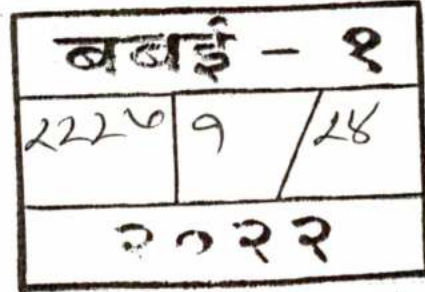 बबई - १
२२२७ १ / २४
२०२२